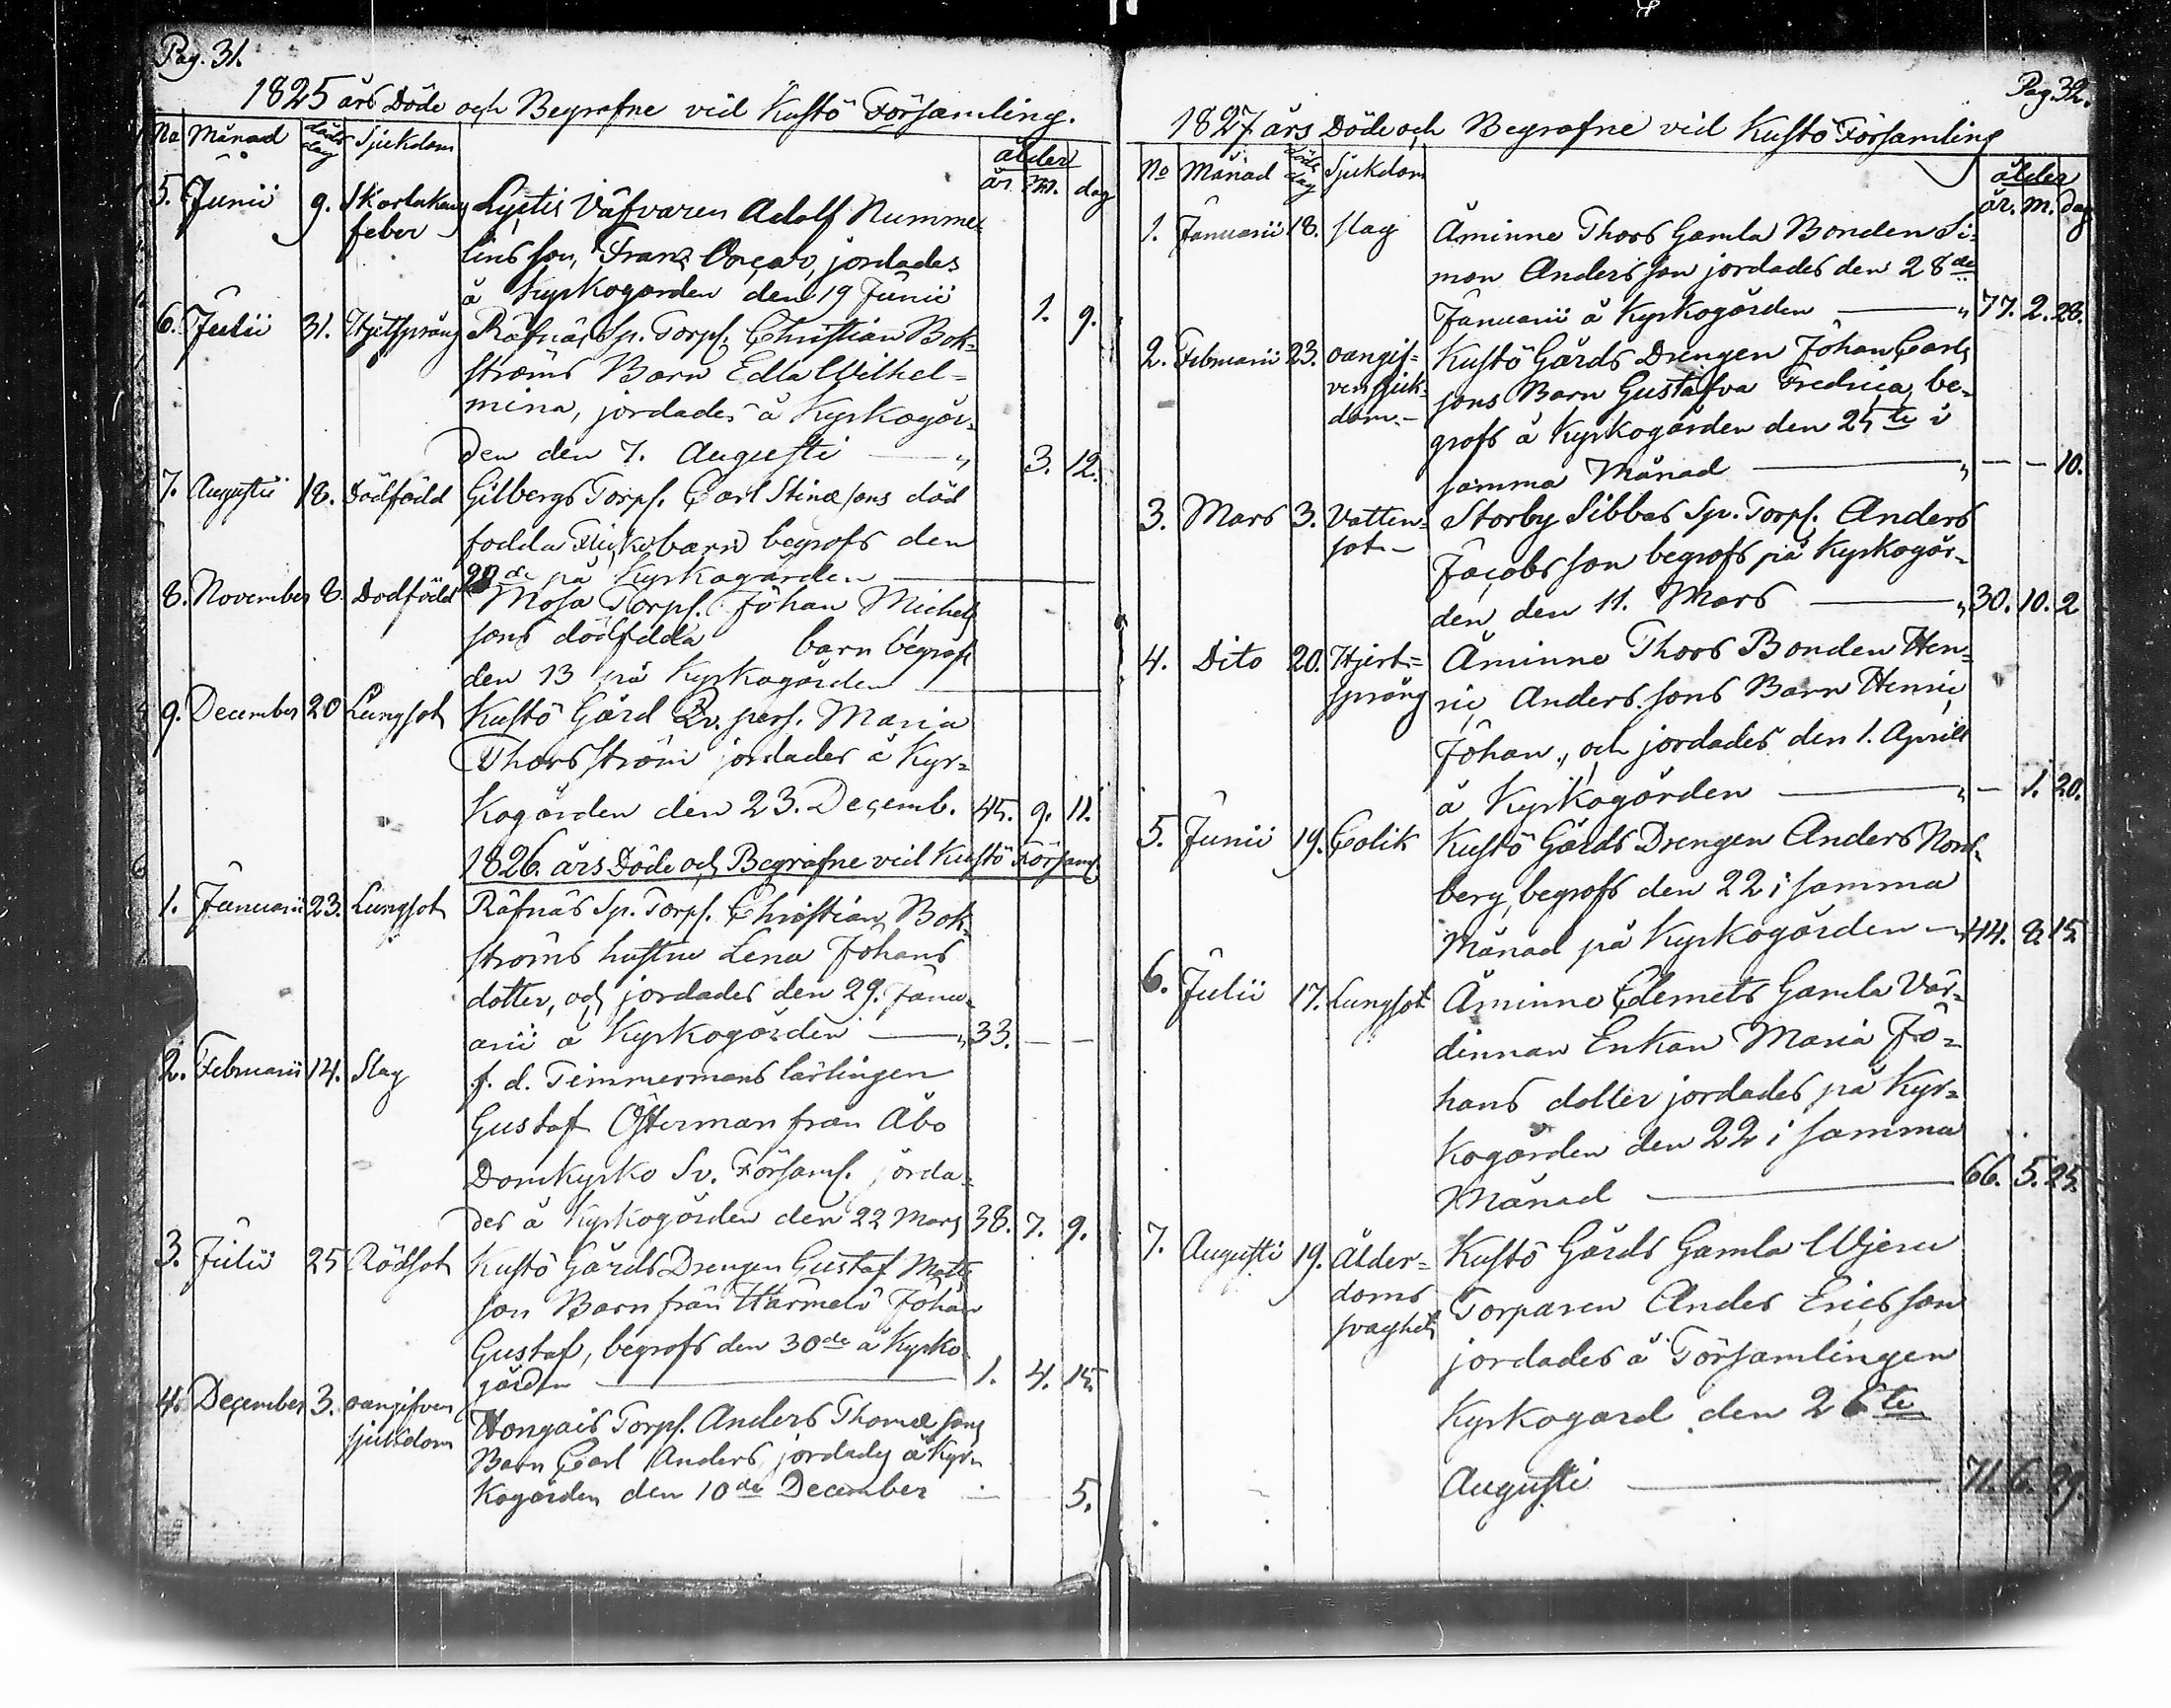 Pag. 31.
1825 års Döde och Begrafne vid Kustö Församling.
No Månad döds dag Sjukdom ålder
år m. dag
5. Junii 9. Skarlakans Lyptis Väfvaren Adolf Numme-
feber lins son, Franz Oscar, jordades
å Kyrkogården den 19 Junii 1. 9.
6. Julii 31. Hjetsprång Räfnäs Sp. Torps. Christian Bok-
ströms Barn Edla Wilhel-
mina, jordades å Kyrkogår-
den den 7. Augusti 3. 12.
7. Augusti 18. Dödfödd Gilbergs Torps. Carl Stinæsons död
fodda Flickobarn begrofs den
de på Kyrkogården
8. November 8. Dodfödd Mosa Torps. Johan Michels
sons dödfödda barn begrofs
den 13 på Kyrkogården
9. December 20 Lungsot Kustö Gård Qv. pers. Maria
Thorsström jordades å Kyr-
kogården den 23. Decemb. 45. 9. 11.
1826. års Döde och Begrafne vid Kustö Församl.
1. Januarii 23. Lungsot Räfnäs Sp. Torps. Christian Bok-
ströms hustru Lena Johans
dotter, och jordades den 29. Janu-
arii å Kyrkogården 33. — —
2. Februarii 14. Slag f. d. Timmermans lärlingen
Gustaf Österman från Åbo
Domkyrko Sv. Församl. jorda-
des å Kyrkogården den 22 Mars 38. 7. 9.
3. Julii 25 Rödsot Kustö Gårds Drengen Gustaf Matts
son Barn från Harmelö Johan
Gustaf, begrofs den 30de å Kyrko-
gården 1. 4. 15.
4. December 3. oangifven Hongais Torps. Anders Thomæsons
sjukdom Barn Carl Anders jordades å Kyr-
kogården den 10de December 5.
Pag. 32.
1827 års Döde och Begrafne vid Kustö Församling
No Månad döds dag Sjukdom ålder
år. m. dag
1. Januarii 18. slag Åminne Thors Gamla Bonden Si-
mon Andersson jordades den 28de
Januarii å Kyrkogården 77. 2. 28.
2. Februarii 23. oangif- Kustö Gårds Drengen Johan Carls
ven sjuk- sons Barn Gustafva Fredrica, be-
dom.- grofs å Kyrkogården den 25te i
samma Månad — — 10.
3. Mars 3. Vatten- Storby Sibbas Sp. Torps. Anders
sot- Jacobsson begrofs på Kyrkogår-
den den 11. Mars 30. 10. 2
4. Dito 20. Hjert- Åminne Thors Bonden Hen-
språng ric Anderssons Barn Henric
Johan, och jordades den 1. Aprill
å Kyrkogården — 1. 20.
5. Junii 19. Colik Kustö Gårds Drengen Anders Nord-
berg, begrofs den 22 i samma
Månad på Kyrkogården 44. 8. 15.
6. Julii 17. Lungsot Åminne Clemets Gamla Vär-
dinnan Enkan Maria Jo-
hans dotter jordades på Kyr-
kogården den 22 i samma
Månad 66. 5. 25.
7. Augusti 19. Ålder- Kustö Gårds Gamla Wjeru
doms Torparen Anders Ericsson
svaghet jordades å Församlingen
Kyrkogard den 26te
Augusti 71. 6. 29.